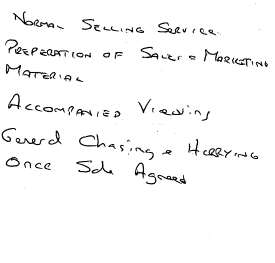 Normal Selling Service
Preperation of Sales & Marketing
Material
Accompanied Viewings
General Chasing & Hurrying
Once Sale Agreed